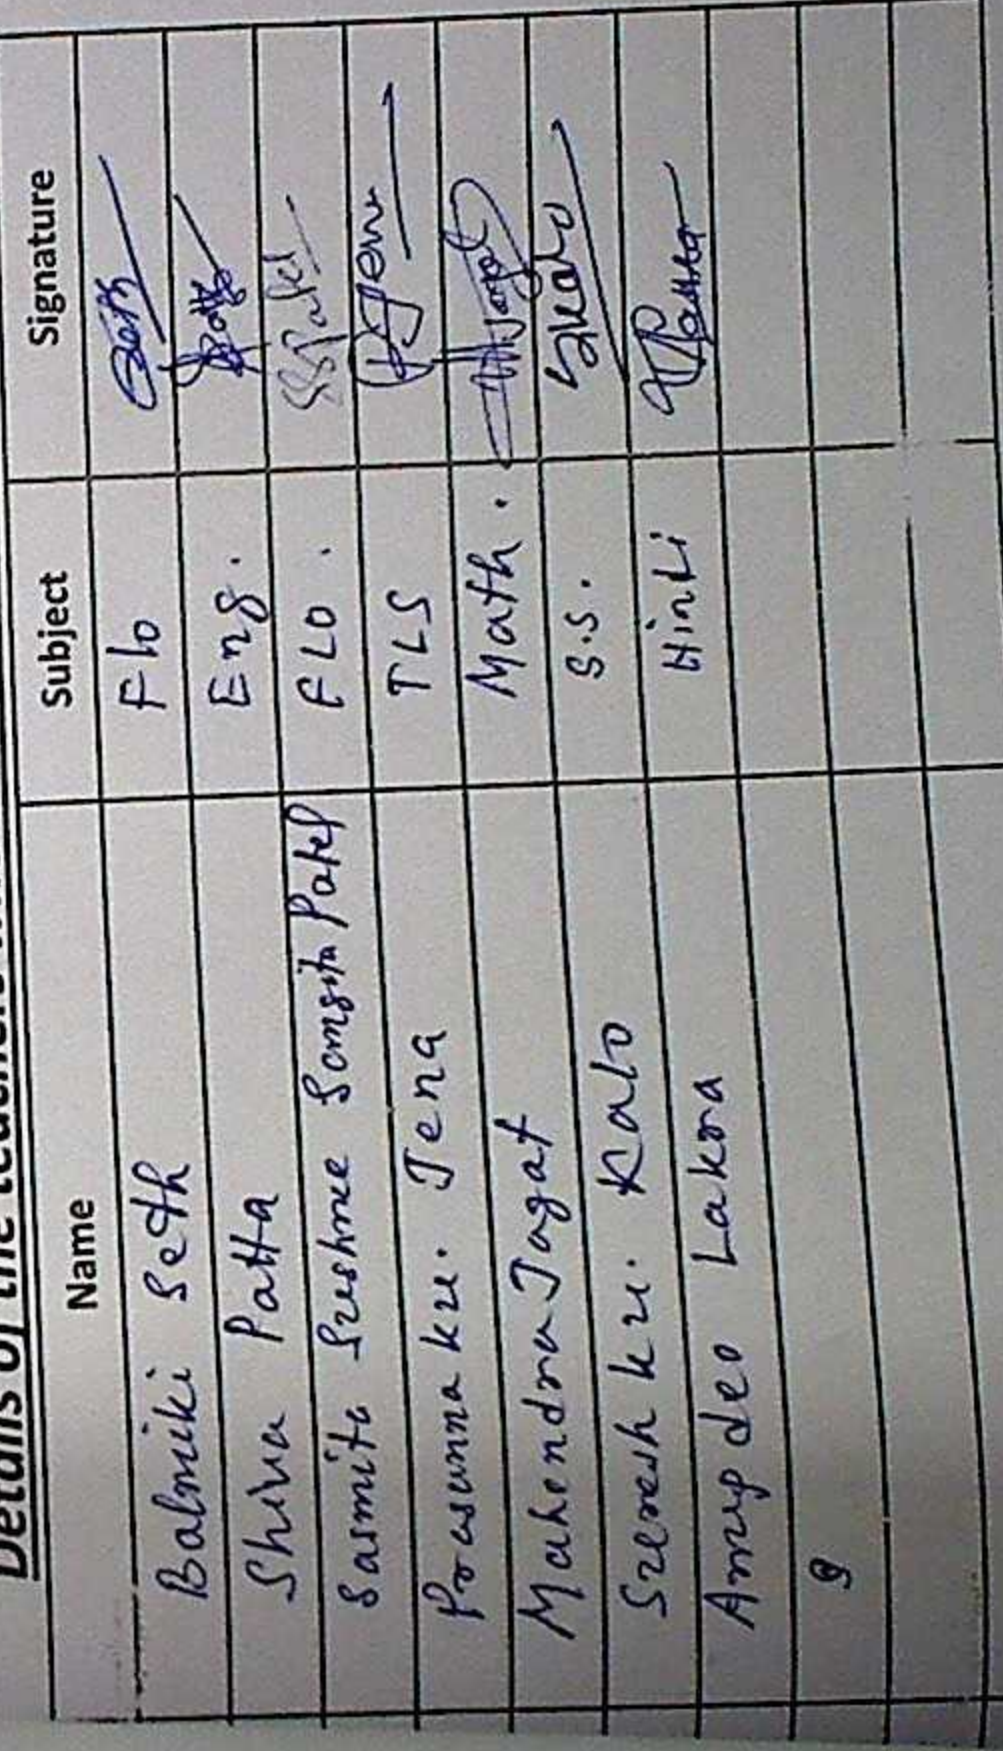 Details of the teachers
Name Subject Signature
Balmiki Seth Flo Seth
Shiva Patta Eng.
Sasmita Sushree Somsita Patel FLO. SSPatel
Prasunna ku. Jena TLS Jena
Mahendra Jagat Math. Jagat
Suresh ku. Kalo S.S. Skalo
Anup deo Lakra Hindi